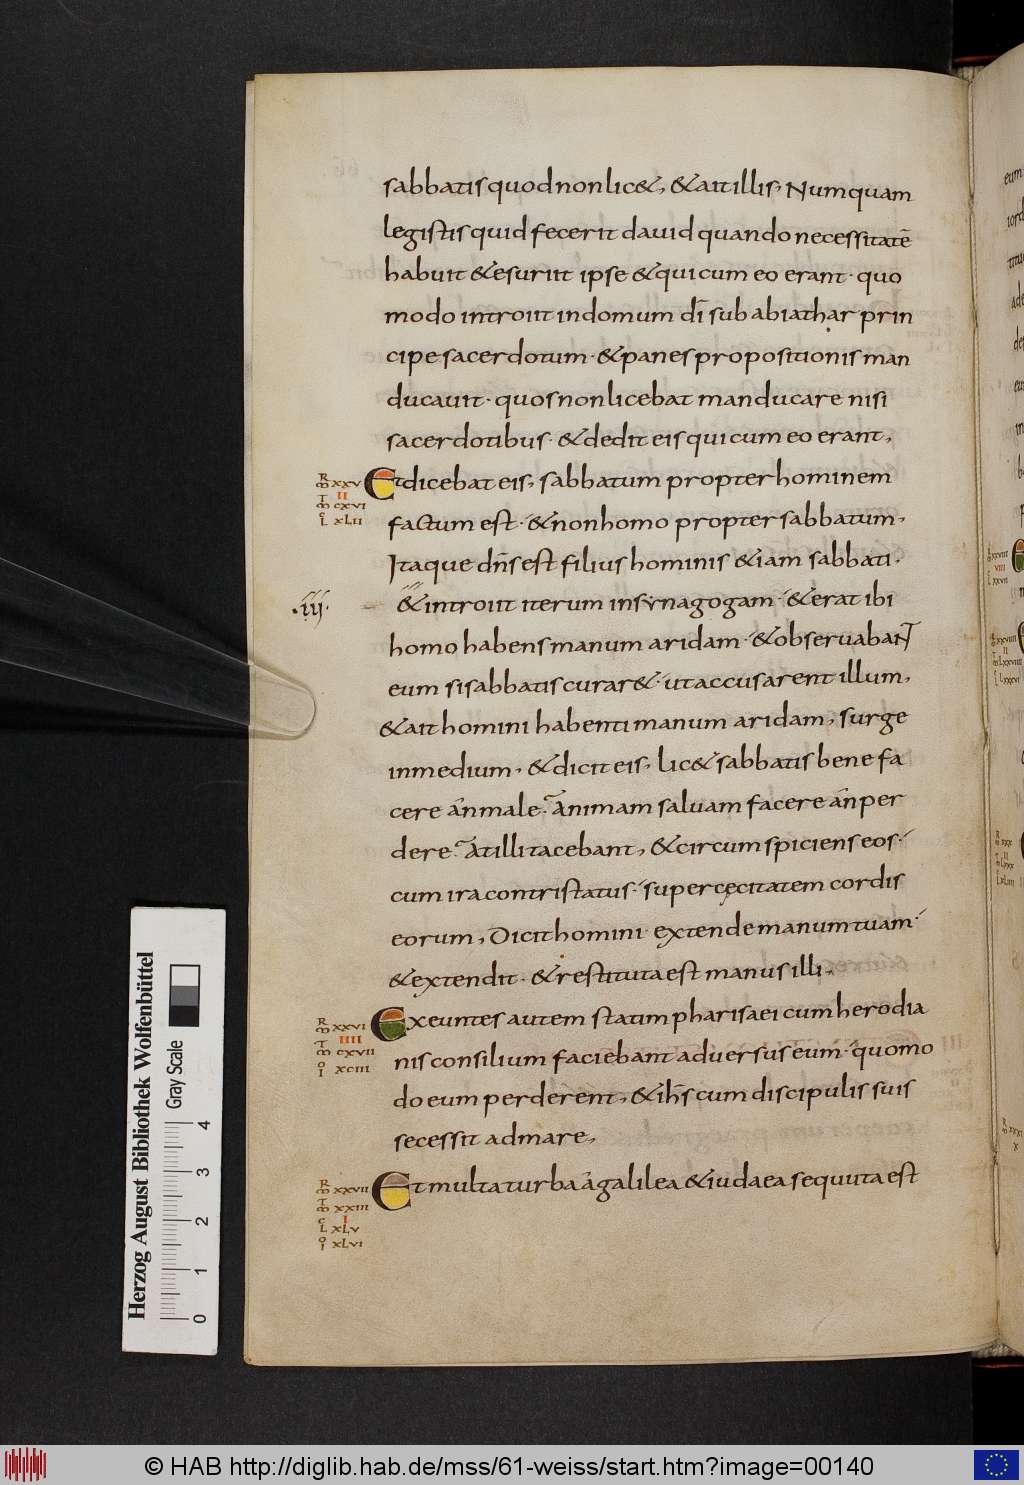 sabbatis quod non lic&, & ait illis, Numquam
legistis quid fecerit dauid quando necessitatē
habuit & esuriit ipse & qui cum eo erant · quo
modo introiit in domum dī sub abiathar prin
cipe sacerdotum · & panes propositionis man
ducauit · quos non licebat manducare nisi
sacerdotibus · & dedit eis qui cum eo erant,
R̄m XXV
II
T̄m CXVI
CL XLII
Et dicebat eis, sabbatum propter hominem
factum est · & non homo propter sabbatum,
Itaque dn̄s est filius hominis & iam sabbati ·
·iij· & introiit iterum in synagogam · & erat ibi
homo habens manum aridam · & obseruabant
eum si sabbatis curar& · ut accusarent illum,
& ait homini habenti manum aridam, surge
in medium, & dicit eis, lic& sabbatis bene fa
cere án male · animam saluam facere án per
dere · At illi tacebant, & circumspiciens eos ·
cum ira contristatus · super cęcitatem cordis
eorum, Dicit homini · extende manum tuam ·
& extendit · & restituta est manus illi,
R̄m XXVI
IIII
T̄m CXVII
OI XCIII
Exeuntes autem statim pharisaei cum herodia
nis consilium faciebant aduersus eum · quomo
do eum perderent, & ih̄s cum discipulis suis
secessit ad mare,
R̄m XXVII
T̄m XXIII
I
CL XLV
OI XLVI
Et multa turba á galilea & iudaea sequuta est
Herzog August Bibliothek Wolfenbüttel
Gray Scale
0 1 2 3 4
© HAB http://diglib.hab.de/mss/61-weiss/start.htm?image=00140